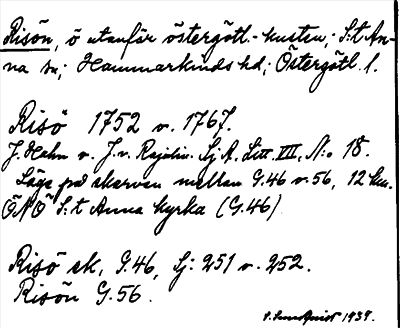 Risön, ö utanför östergötl.-kusten; S:t An-
na sn; Hammarkinds hd; Östergötl. l.
Risö 1752 o. 1767.
J. Hahn o. J. v. Rajalin. Sj. A. Litt. VII, N:o 18.
Läge på skarven mellan G.46 o. 56, 12 km.
ÖNÖ S:t Anna kyrka (G.46)
Risö sk, G.46, Sj: 251 o. 252.
Risön G.56.
S. Lundquist 1939.